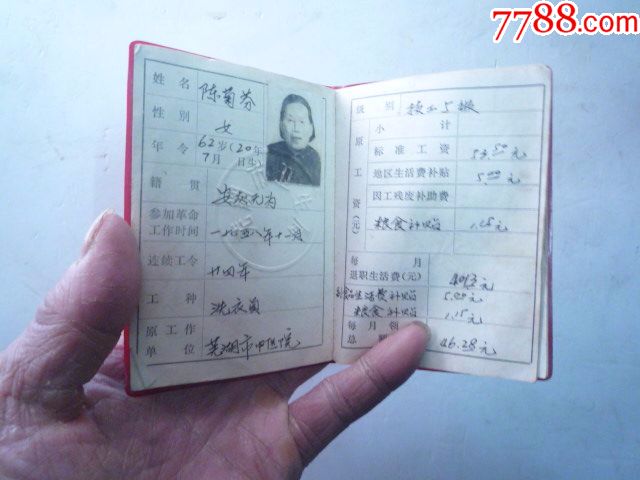 7788.com
姓名 陈菊芬
性别 女
年令 62岁(20年
7月 日生)
籍贯 安徽无为
参加革命
工作时间 一九五八年十一月
连续工令 廿四年
工种 洗衣员
原工作
单位 芜湖市中医院
级别 技工5级
原工资(元)
小计
标准工资 53.50元
地区生活费补贴 5.00元
因工残废补助费
粮食补贴
每月
退职生活费(元)
副食品生活费补贴 5.00元
粮食补贴 1.15元
每月领
总
46.28元